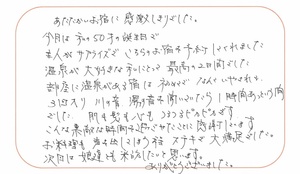 あたたかいお宿に感激しまりでした。
今月は私の50才の誕生日で
主人がサプライズでこちらのお宿を予約してくれました
温泉が大好きな私にとって最高の2日間でした
部屋に温泉がある宿は初めてで なんといやされ、
3回入り 川の音 湯の音を聞いていたら 1時間あっという間
でした。肌も髪も心もつるつるピカピカです
こんな素敵な時間を過ごせたことに感謝しています
お料理も 音を出してしまう程 ステキで 大満足でした。
次回は娘達も来たいと思います。
ありがとうございました。